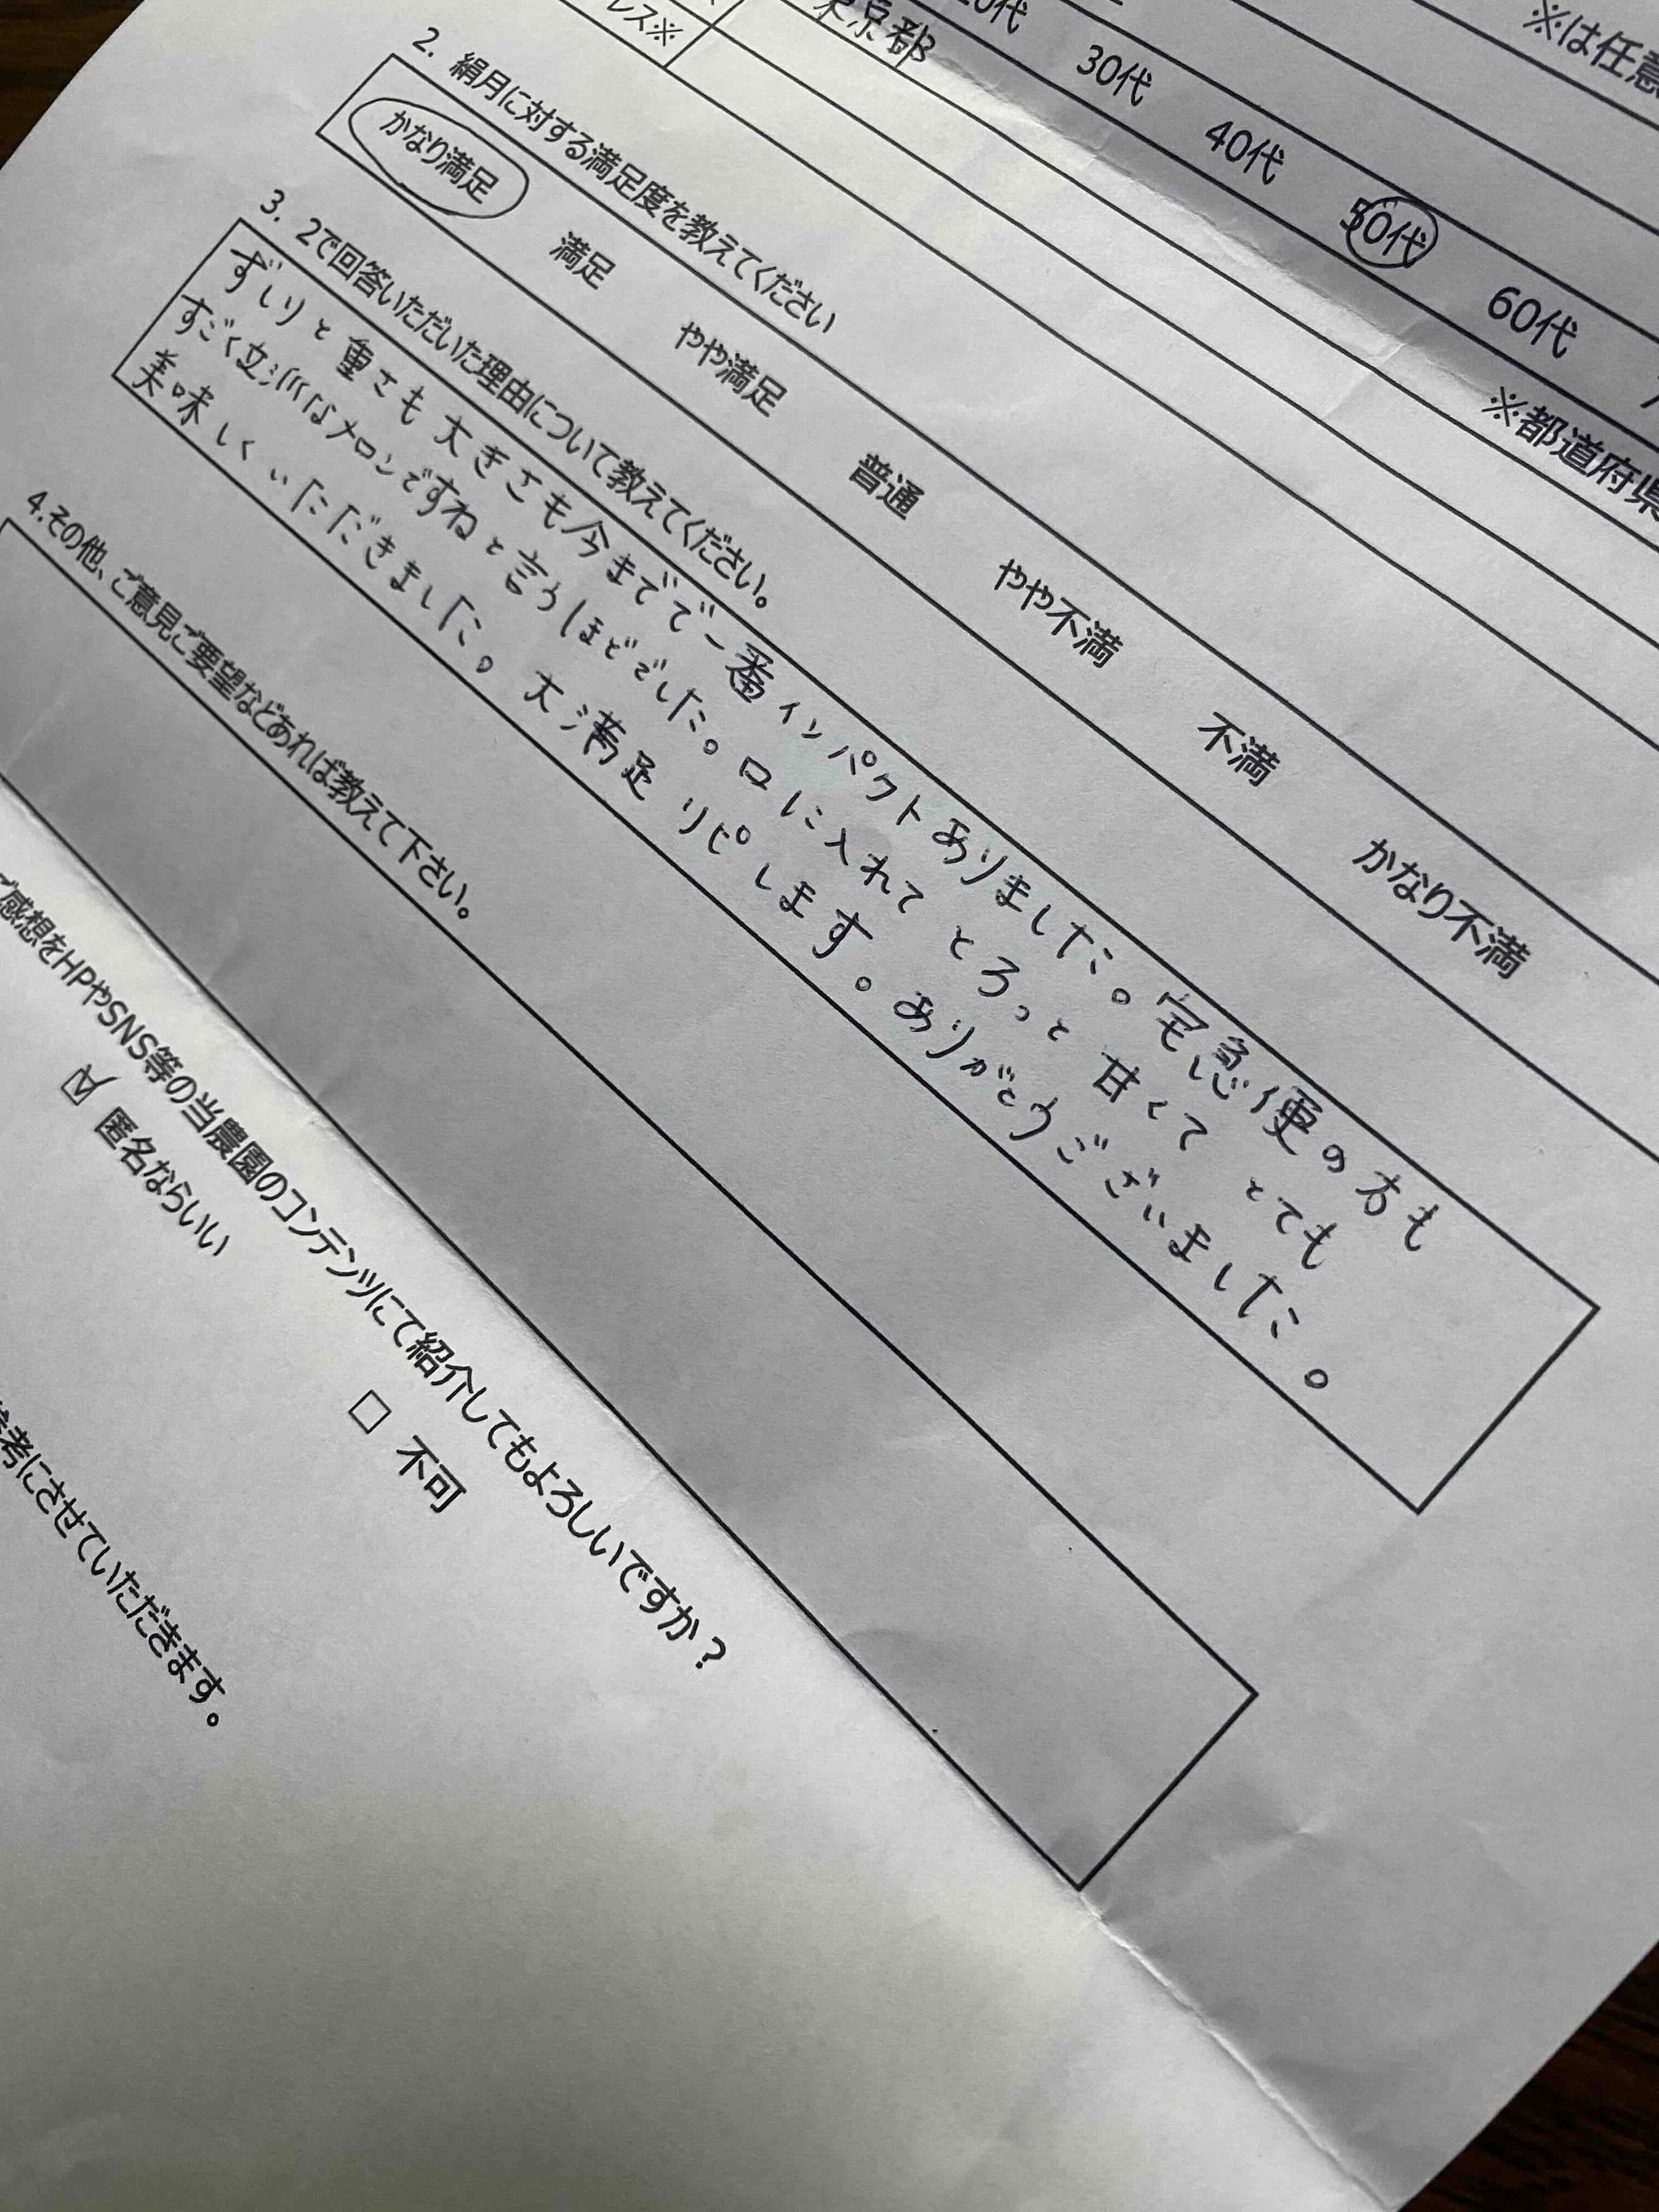 ※は任意
20代 30代 40代 50代 60代
※都道府県
東京都
レス※
2. 絹月に対する満足度を教えてください
かなり満足 満足 やや満足 普通 やや不満 不満 かなり不満
3. 2で回答いただいた理由について教えてください。
ずしりと重さも大きさも今までで一番インパクトありました。宅急便の方も
すごく立派なメロンですねと言うほどでした。口に入れてとろっと甘くてとても
美味しくいただきました。大満足リピします。ありがとうございました。
4.その他、ご意見ご要望などあれば教えて下さい。
ご感想をHPやSNS等の当農園のコンテンツにて紹介してもよろしいですか？
匿名ならいい 不可
参考にさせていただきます。